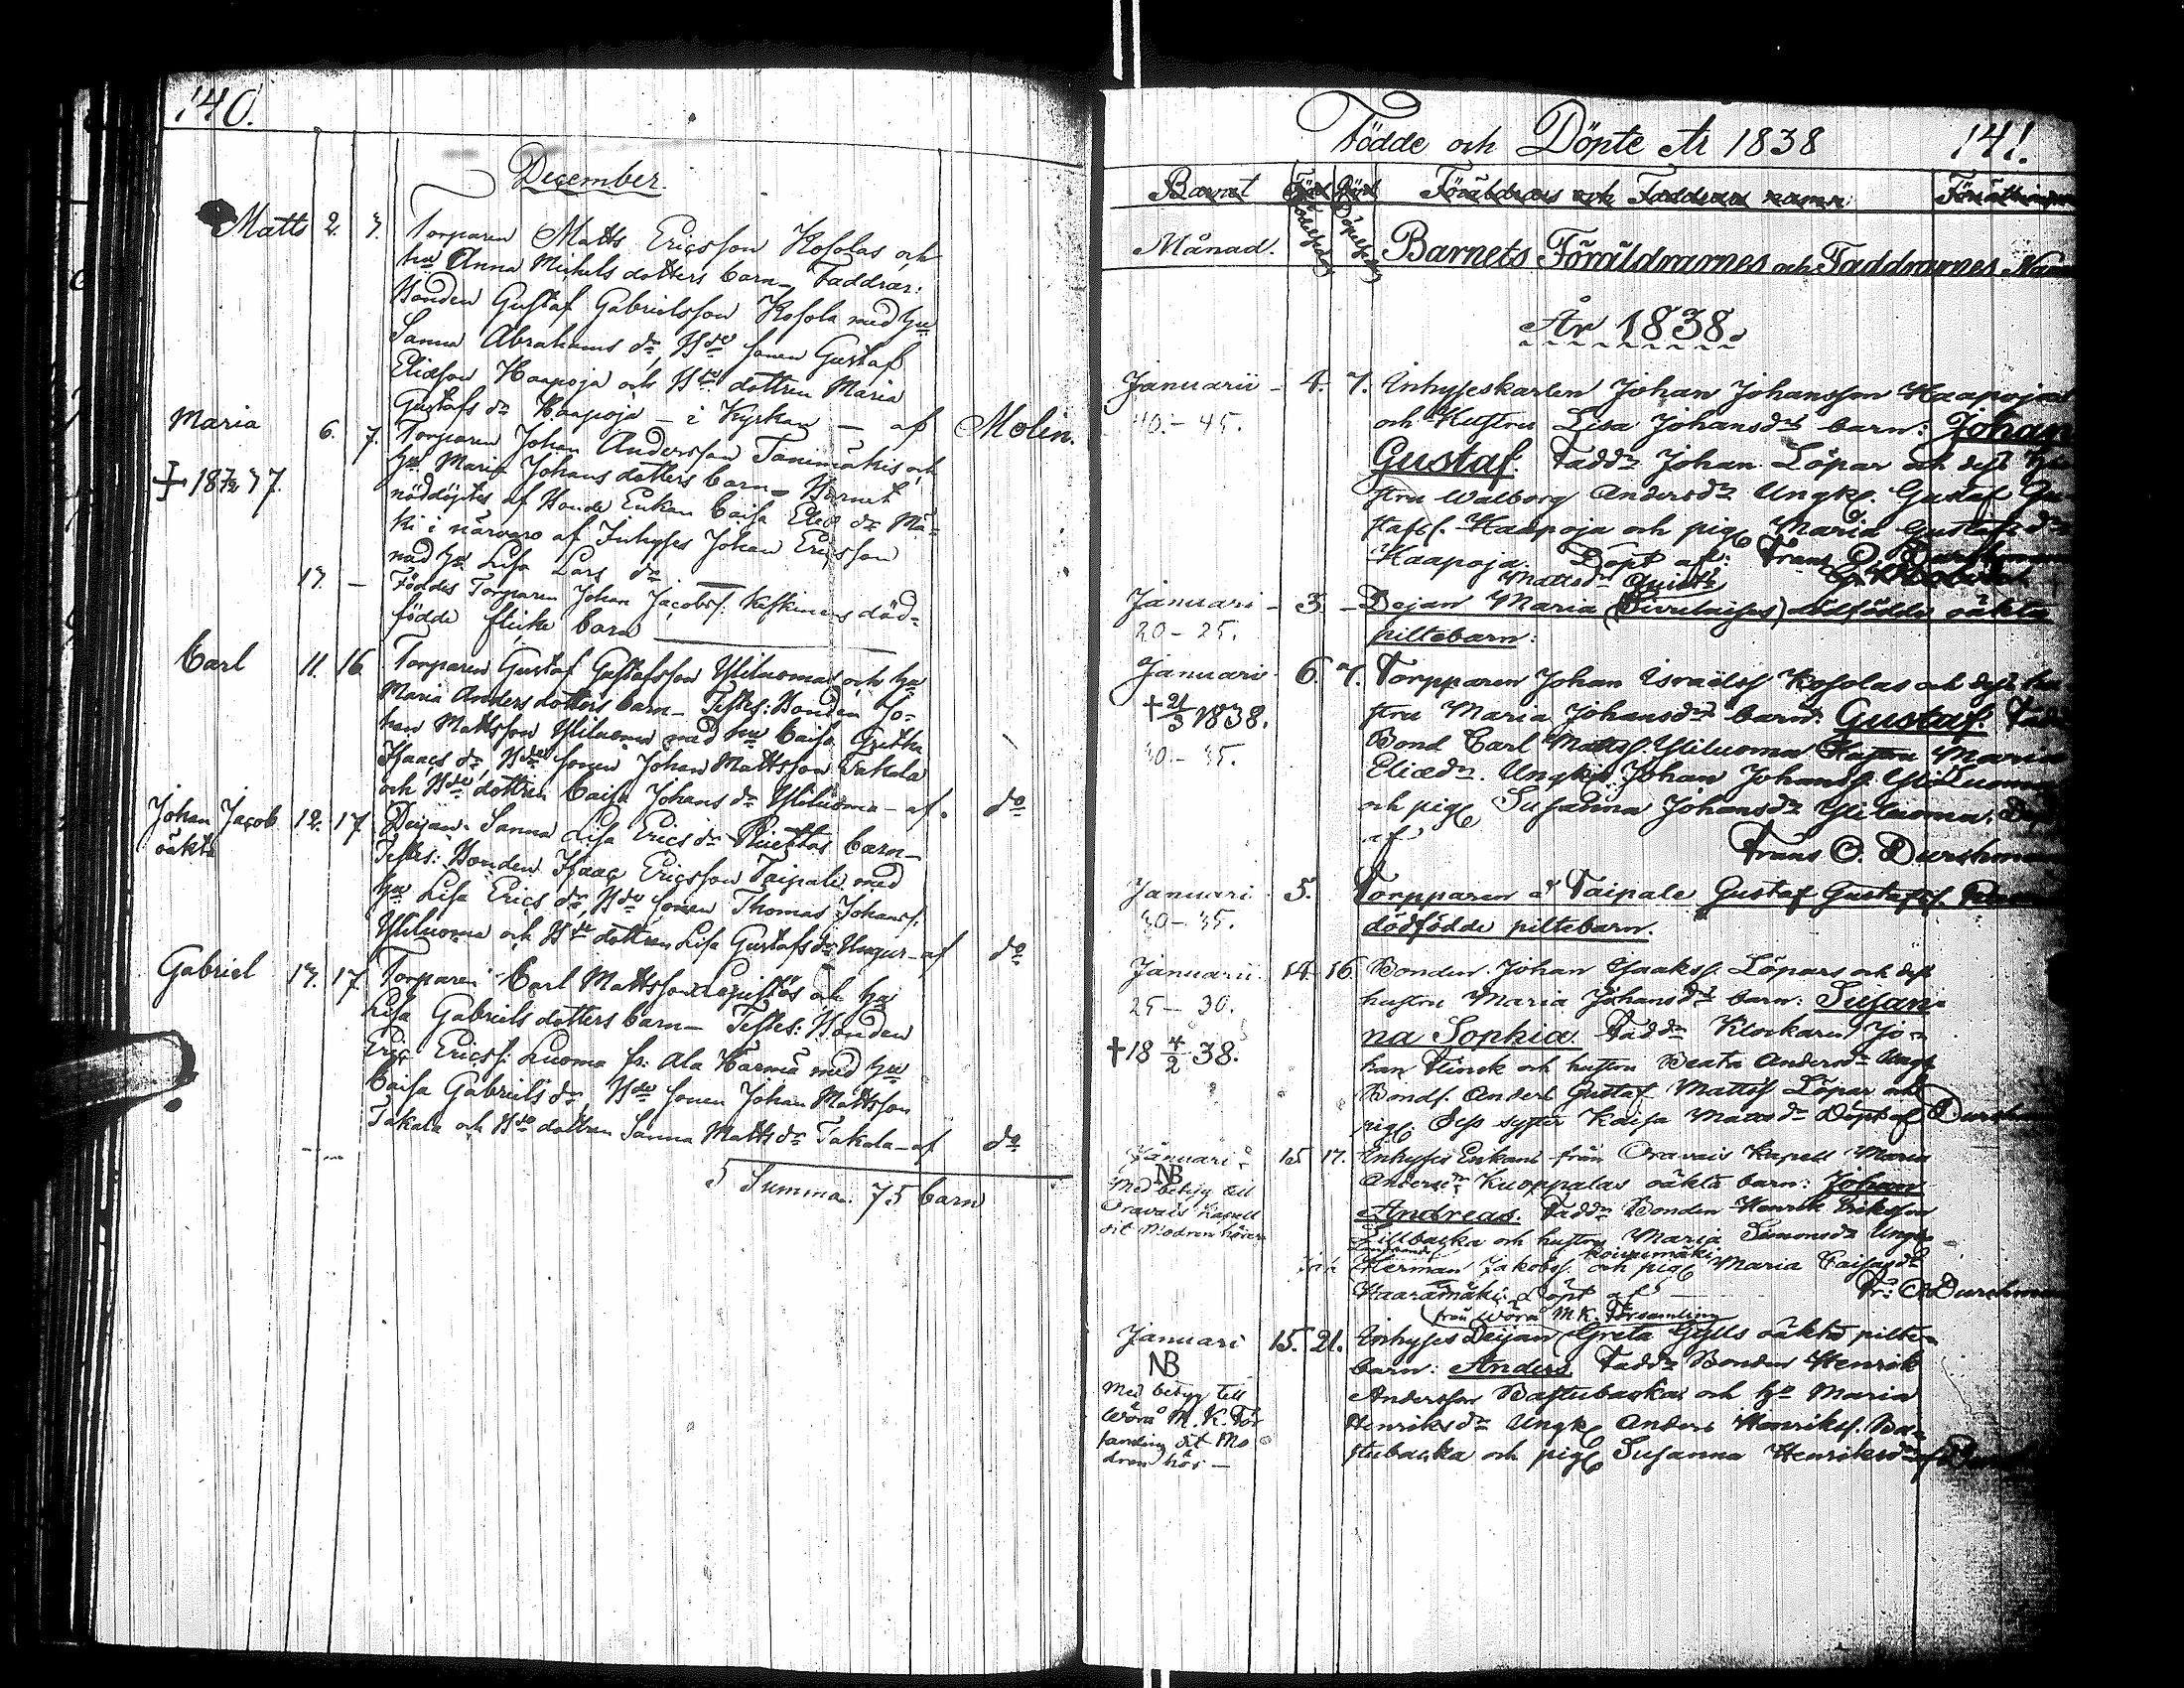 140.
December.
Matts 2. 3. Torparen Matts Ericsson Kosolas och
hu Anna Michels dotters barn – Faddrar:
Bonden Gustaf Gabrielsson Kosola med hu
Sanna Abrahams dr, Bde sonen Gustaf
Eliæson Haapoja och Bde dottren Maria
Gustafs dr Haapoja – i Kyrkan – af Molin.
Maria 6. 7. Torparen Johan Andersson Tanimäkis och
hu Maria Johans dotters barn – Barnet
nöddöptes af Bonde Enkan Caisa Eliæ dr Mä-
ki i närvaro af Inhyses Johan Ericsson
med hu Lisa Lars dr
13. – Föddes Torparen Johan Jacobss: Keskinens död-
födde flicke barn
Carl 11. 16. Torparen Gustaf Gustafsson Yliluomas och hu
Maria Anders dotters barn – Testes: Bonden Jo-
han Mattsson Yliluoma med hu Caisa Gretha
Isaacs dr, Bde sonen Johan Mattsson Takala
och Bde dottren Caisa Johans dr Yliluoma – af. do
Johan Jacob 12. 17. Deijan Sanna Lisa Erics dr barn –
oäkta Testes: Bonden Isaac Ericsson Taipale med
hu Lisa Erics dr, Bde sonen Thomas Johanss:
Yliluoma och Bde dottren Lisa Gustafs dr Ungur – af do
Gabriel 13. 17. Torparen Carl Mattsson och hu
Lisa Gabriels dotters barn – Testes: Bonden
Eric Ericss: Luoma fr: Ala Härmä med hu
Caisa Gabriels dr, Bde sonen Johan Mattsson
Takala och Bde dottren Sanna Matts dr Takala – af do
Summa: 75 barn
Födde och Döpte År 1838 141.
Barnet Född Döpt Föräldrars och Faddrars namn
Månad. Barnets Föräldrarnes och Faddrarnes
År 1838.
Januarii – 4. 7. Inhyseskarlen Johan Johansson Haapojas
40. – 45. och Hustru Lisa Johansdrs barn: Johan
Gustaf. Faddr Johan Löpar och dess
stru Walborg Andersdr Ungk. Gustaf Gu-
stafs. Haapoja och pig. Maria Gustafsdr
Haapoja. Döpt af: Frans O. Durchman
Mattsdr
Januari – 3. – Dejan Maria dödfödde oäkta
20 – 25. piltebarn.
Januari 6. 7. Torpparen Johan Israels. Kosolas och dess hu-
† 21/3 1838. stru Maria Johansdrs barn: Gustaf.
30. – 35. Bond. Carl Matts. Yliluoma Hustru Maria
Eliædr. Ungk. Johan Johans. Yliluoma
och pig. Susanna Johansdr Yliluoma.
af Frans O. Durchman
Januari 5. Torpparen å Taipale Gustaf Gustafs.
30 – 35. dödfödde piltebarn.
Januarii 14. 16. Bonden Johan Isaaks. Löpars och dess
25 – 30. hustru Maria Johansdrs barn: Susan-
† 18 4/2 38. na Sophia. Faddr Klockaren Jo-
han Flinck och hustru Beata Andersdr Ungk.
Bonds. Anders Gustaf Matts. Löpar och
pig. dess syster Kaisa Mattsdr Döpt af Durchman
Januari 15. 17. Inhyses Enkans från Oravais Kapell Maria
NB Andersdr Kuoppalas oäkta barn: Johan
Med betyg till Andreas. Faddr Bonden Henrik Eriksson
Oravais Kapell Lillbacka och hustru Maria Simonsdr Ungk.
dit Modren hörer Herman Jakobs. och pig. Maria
Döpt af Fr: O. Durchman
från Wörå M.K. Församling
Januari 15. 21. Inhyses Deijan Greta Gylls oäkta pilte-
NB barn: Anders. Faddr Bonden Henrik
Med betyg till Andersson Bastubacka och hu Maria
Wörå M.K. För Henriksdr Ungk. Anders Henriks. Ba-
samling dit Mo stubacka och pig. Susanna Henriksdr
dren hör –